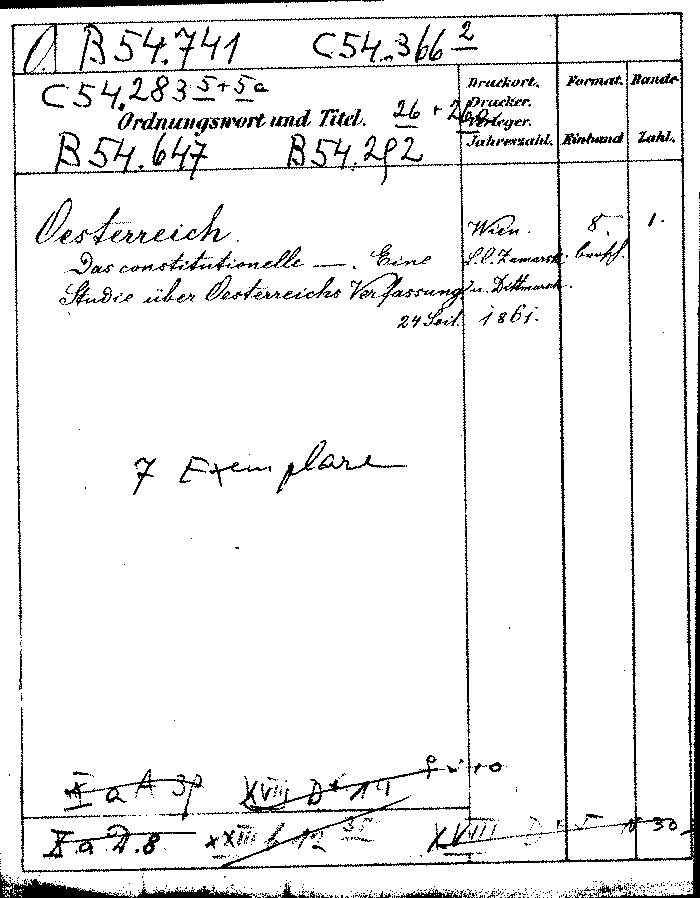 B54.741 C54.366 2
C54.283 5+5a
Druckort. Format. Bände-
Drucker.
Ordnungswort und Titel. 26 + 26a Verleger.
B54.647 B54.292 Jahreszahl. Einband Zahl.
Oesterreich. Wien. 8. 1.
Das constitutionelle —. Eine L.C. Zamarski brosch.
Studie über Oesterreichs Verfassung u. Dittmarsch.
24 Seit. 1861.
7 Exemplare
X a A 39 XVIII D
X a D.8 XXXIII b 12 XVIII D 5 N 30